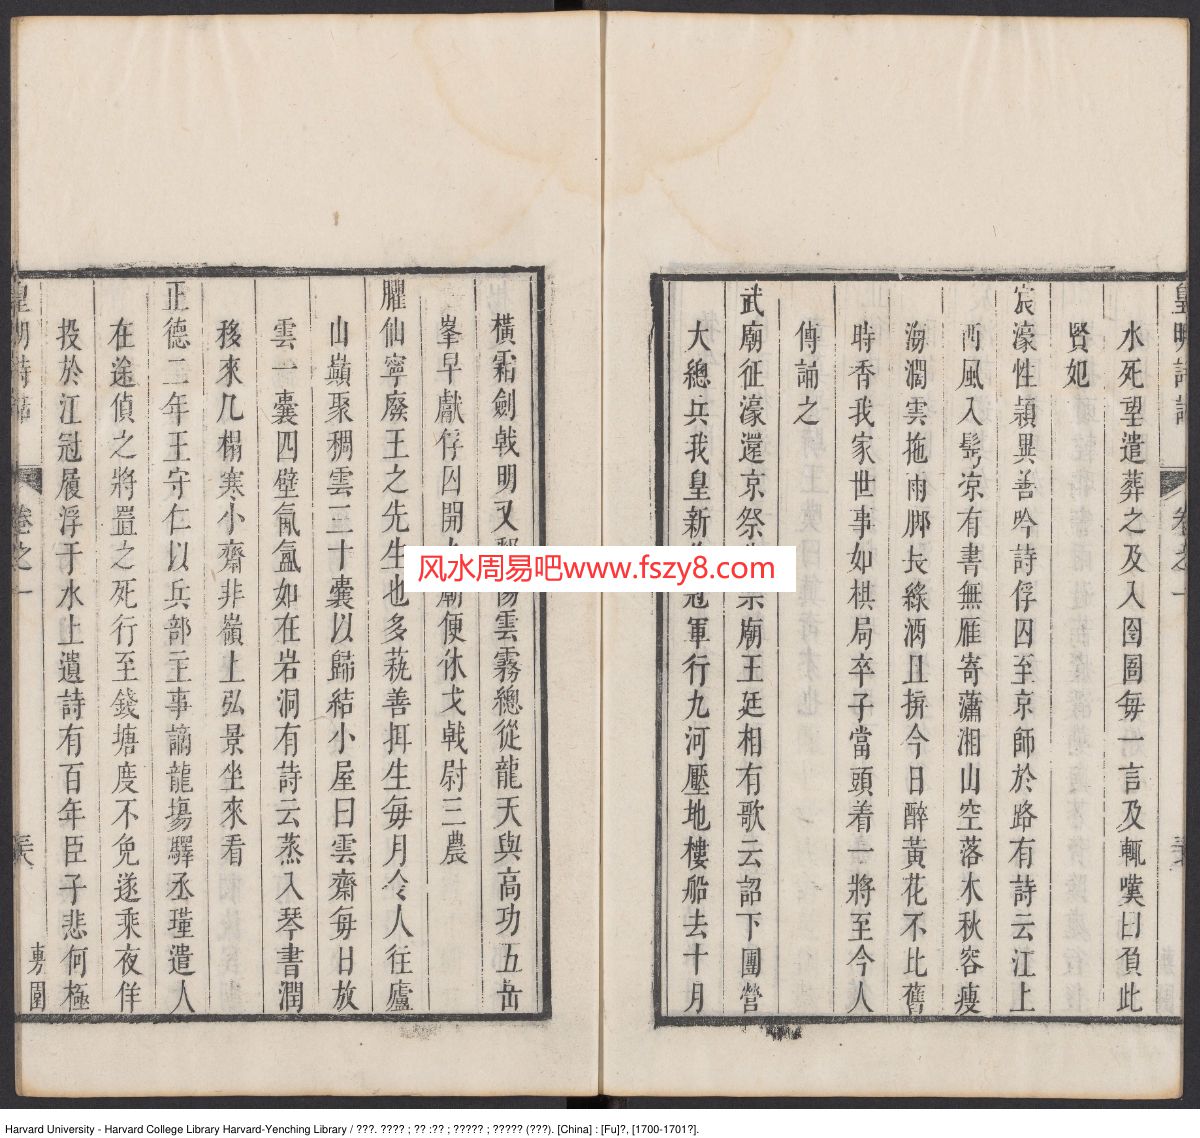 水死望遣葬之及入囹圄每一言及輒嘆曰負此
賢妃
宸濠性穎異善吟詩俘囚至京師於路有詩云江上
西風入髩凉有書無雁寄瀟湘山空落木秋容瘦
海濶雲拖雨脚長綠酒且拚今日醉黃花不比舊
時香我家世事如棋局卒子當頭着一將至今人
傳誦之
武廟征濠還京祭 宗廟王廷相有歌云詔下團營
大總兵我皇新 冠軍行九河壓地樓船去十月
風水周易吧www.fszy8.com
橫霜劍戟明又 雲霧總從龍天與高功五岳
峯早獻俘囚開 廟便休戈戟尉三農
臞仙寧廢王之先生也多蓺善弭生每月令人往廬
山巔聚稠雲三十囊以歸結小屋曰雲齋每日放
雲一囊四壁氤氳如在岩洞有詩云蒸入琴書潤
移來几榻寒小齋非嶺上弘景坐來看
正德二年王守仁以兵部主事謫龍塲驛丞瑾遣人
在途偵之將置之死行至錢塘度不免遂乘夜佯
投於江冠履浮于水上遺詩有百年臣子悲何極
Harvard University - Harvard College Library Harvard-Yenching Library / ???. ???? ; ?? :?? ; ????? ; ????? (???). [China] : [Fu]?, [1700-1701?].